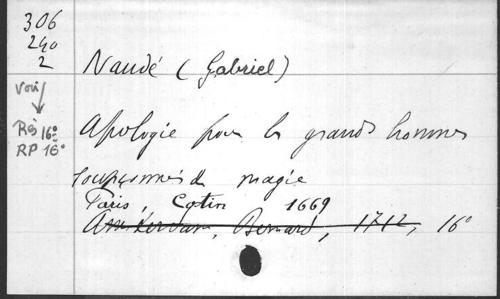 306
240
2
Naudé (Gabriel)
Voir
Rés 16°
RP 16°
Apologie pour les grands hommes
soupçonnés de magie
Paris, Cotin 1669
Amsterdam, Bernard, 1712, 16°